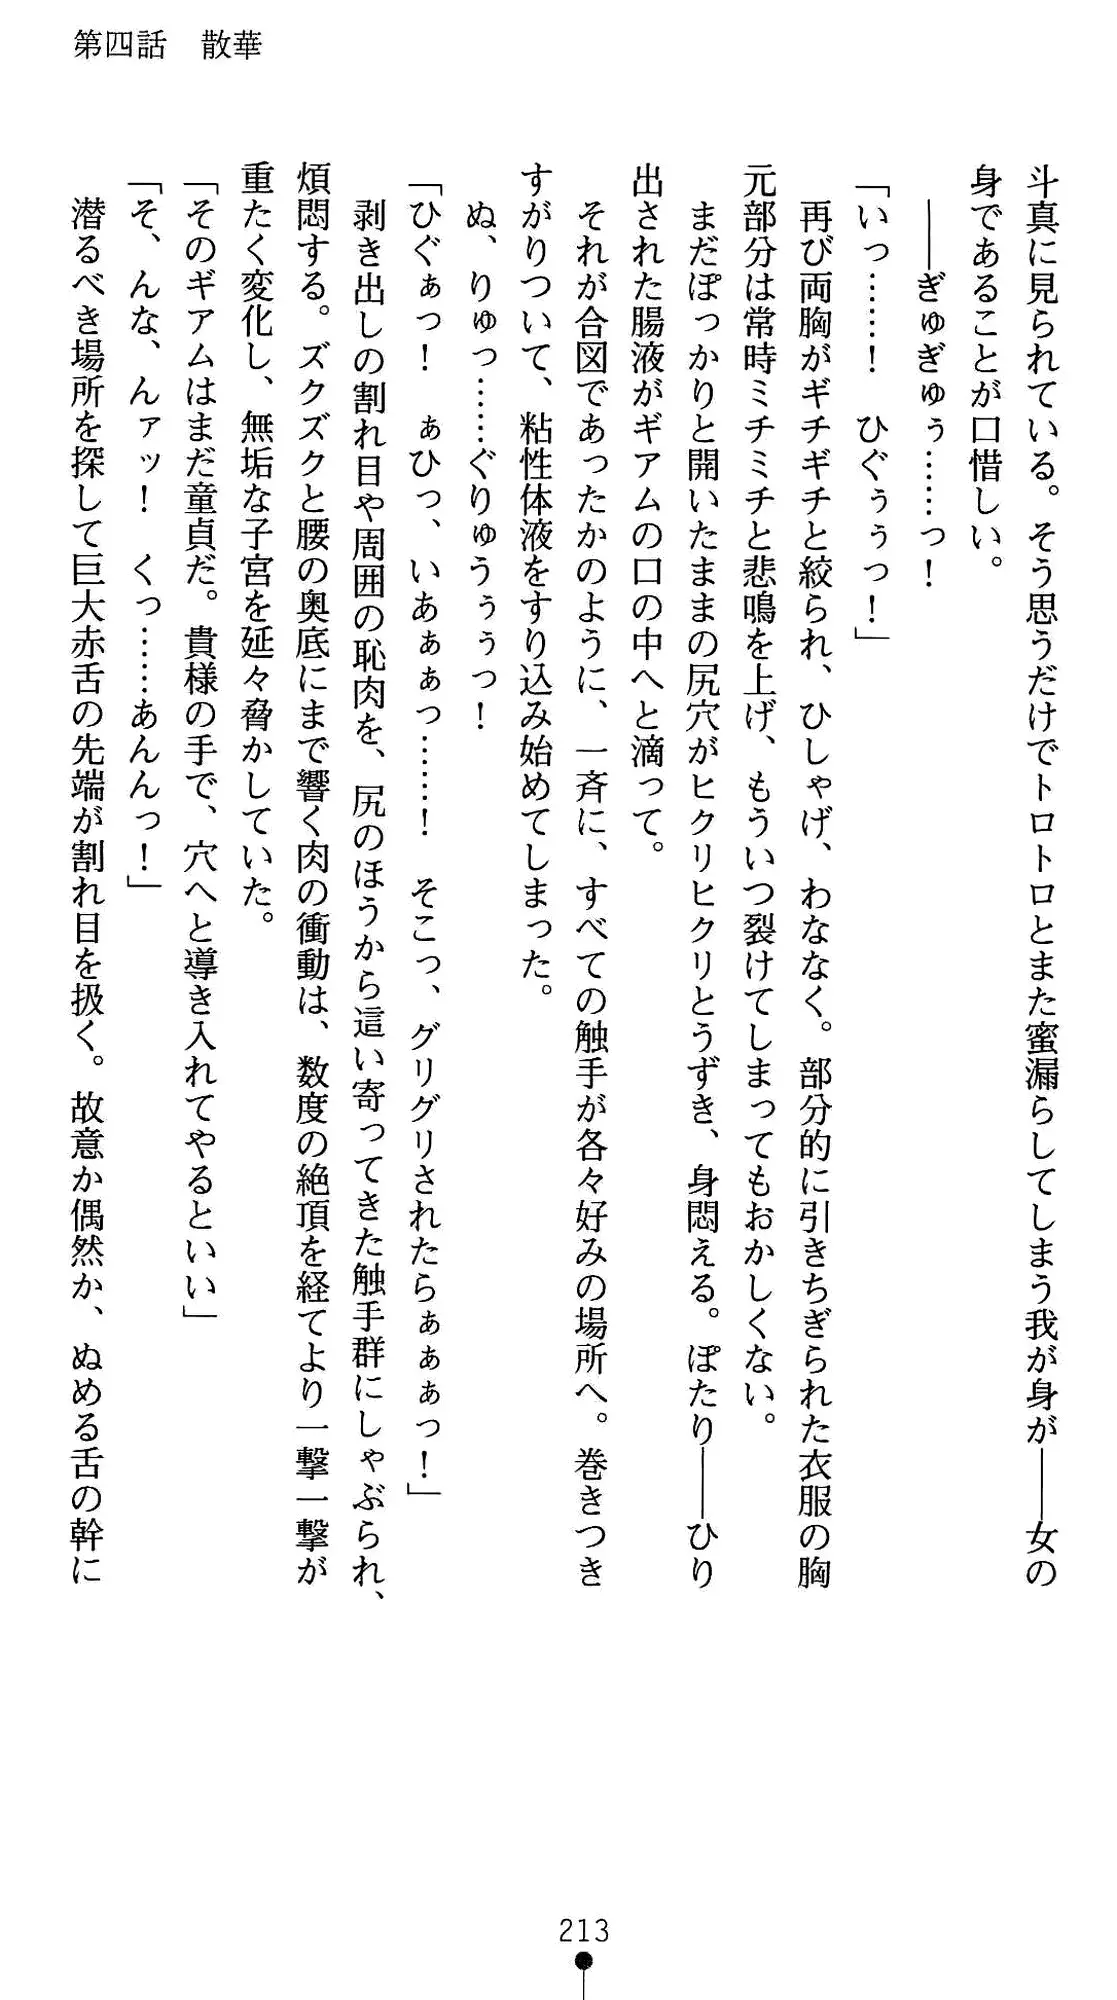 第四話　散華
斗真に見られている。そう思うだけでトロトロとまた蜜漏らしてしまう我が身が――女の
身であることが口惜しい。
――ぎゅぎゅぅ……っ！
「いっ……！　ひぐぅぅっ！」
再び両胸がギチギチと絞られ、ひしゃげ、わななく。部分的に引きちぎられた衣服の胸
元部分は常時ミチミチと悲鳴を上げ、もういつ裂けてしまってもおかしくない。
まだぽっかりと開いたままの尻穴がヒクリヒクリとうずき、身悶える。ぽたり――ひり
出された腸液がギアムの口の中へと滴って。
それが合図であったかのように、一斉に、すべての触手が各々好みの場所へ。巻きつき
すがりついて、粘性体液をすり込み始めてしまった。
ぬ、りゅっ……ぐりゅうぅぅっ！
「ひぐぁっ！　ぁひっ、いあぁぁっ……！　そこっ、グリグリされたらぁぁぁっ！」
剥き出しの割れ目や周囲の恥肉を、尻のほうから這い寄ってきた触手群にしゃぶられ、
煩悶する。ズクズクと腰の奥底にまで響く肉の衝動は、数度の絶頂を経てより一撃一撃が
重たく変化し、無垢な子宮を延々脅かしていた。
「そのギアムはまだ童貞だ。貴様の手で、穴へと導き入れてやるといい」
「そ、んな、んァッ！　くっ……あんんっ！」
潜るべき場所を探して巨大赤舌の先端が割れ目を扱く。故意か偶然か、ぬめる舌の幹に
213